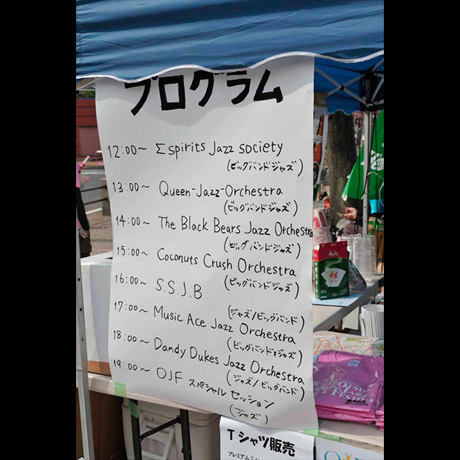 プログラム
12:00~ Σspirits Jazz society
(ビッグバンドジャズ)
13:00~ Queen-Jazz-Orchestra
(ビッグバンドジャズ)
14:00~ The Black Bears Jazz Orchestra
(ビッグバンドジャズ)
15:00~ Coconuts Crush Orchestra
(ビッグバンドジャズ)
16:00~ S.S.J.B
(ジャズ/ビッグバンド)
17:00~ Music Ace Jazz Orchestra
(ビッグバンドジャズ)
18:00~ Dandy Dukes Jazz Orchestra
(ジャズ/ビッグバンド)
19:00~ OJF スペシャル セッション
(ジャズ)
Tシャツ販売